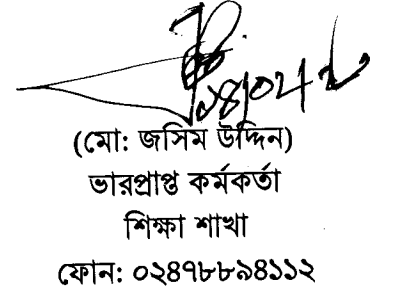 (মো: জসিম উদ্দিন)
ভারপ্রাপ্ত কর্মকর্তা
শিক্ষা শাখা
ফোন: ০২৪৭৮৮৯৪১১২